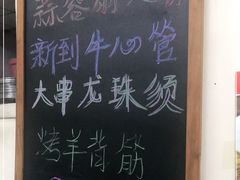 蒜蓉
新到牛心管
大串龙珠须
烤羊背筋